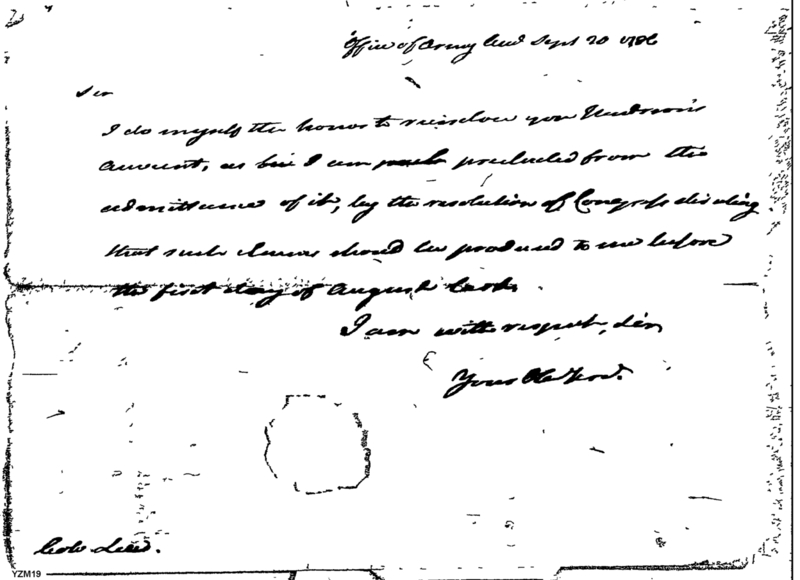 Office of Army Acct Sept 20 1786
Sir
I do myself the honor to reinclose you Hudson's
account, as I am precluded from the
admittance of it, by the resolution of Congress directing
that such claims should be produced to me before
the first day of August last.
I am with respect, Sir,
Your Ob Serv.
Colo
YZM19